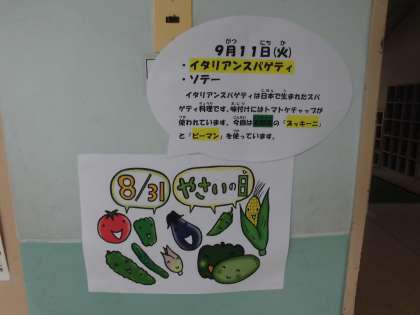 9月11日(火)
・イタリアンスパゲティ
・ソテー
イタリアンスパゲティは日本で生まれたスパ
ゲティ料理です。味付けにはトマトケチャップが
使われています。今回は の「ズッキーニ」
と「ピーマン」を使っています。
8/31 やさいの日